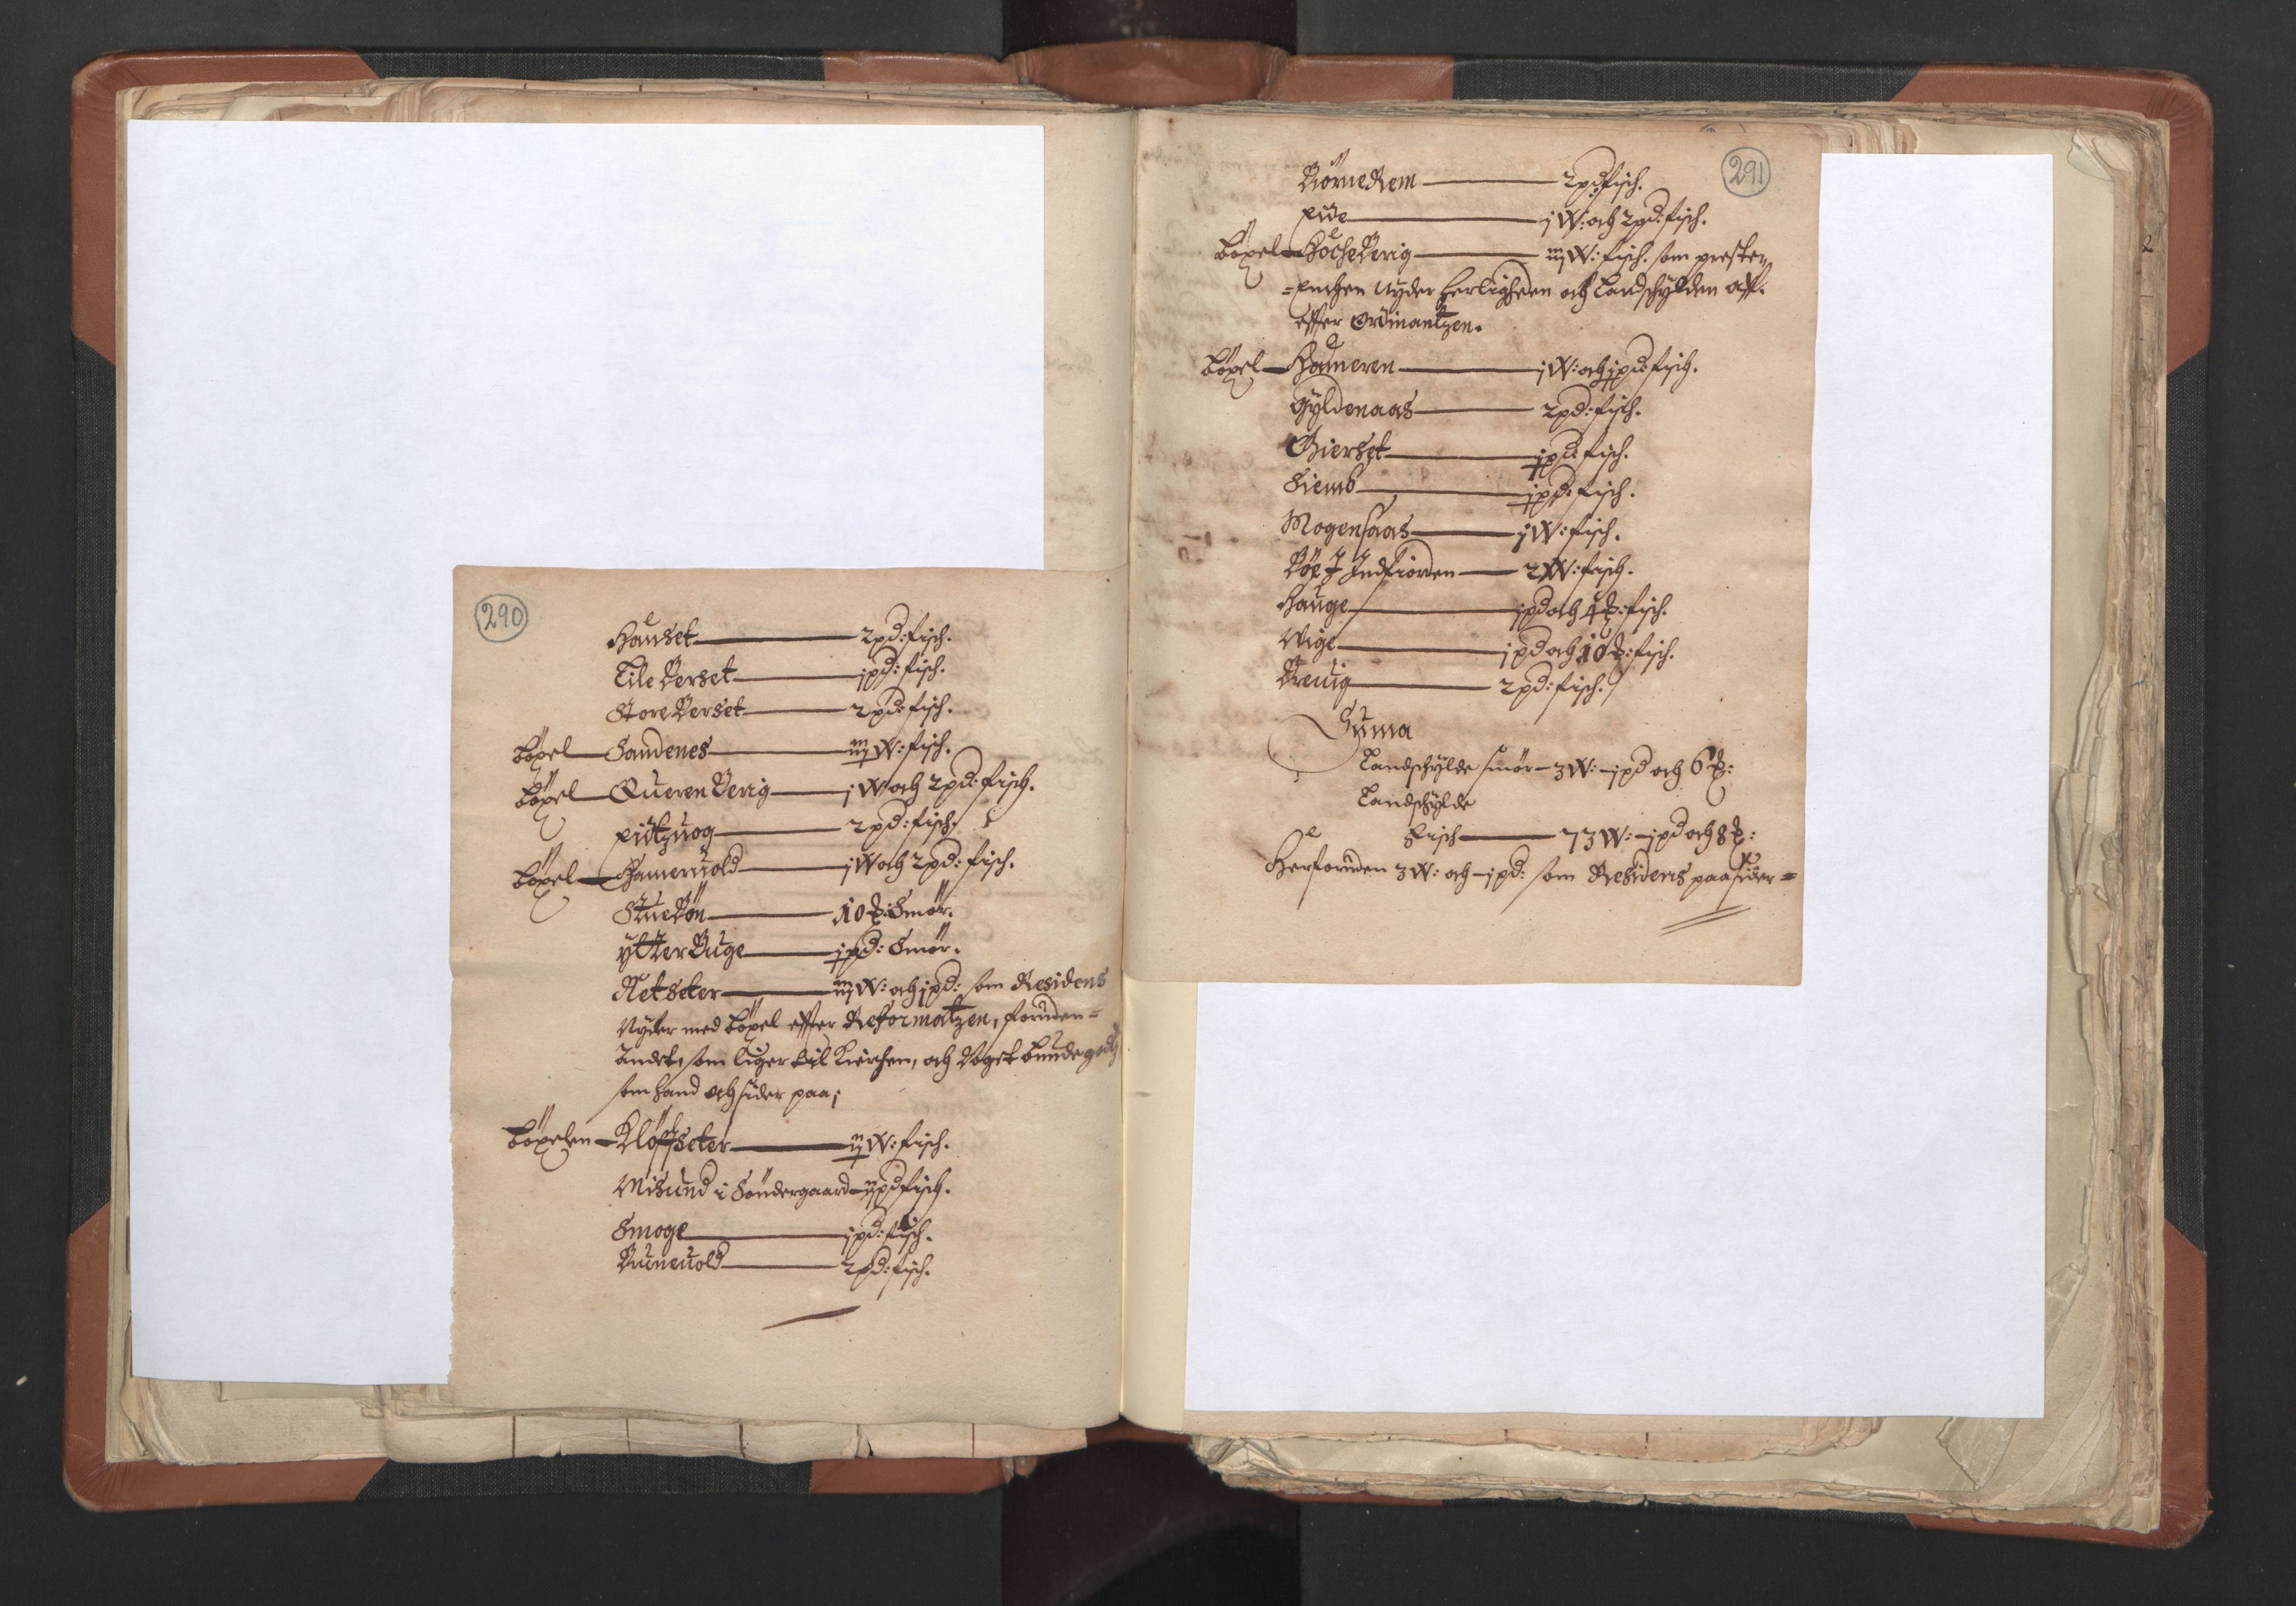 290
Hauset 2 pd: fisch.
Lile Berset j pd: fisch.
Store Berset 2 pd: fisch.
böxel Sandenes iij W: fisch.
böxel Queren Berig j W och 2 pd: fisch.
Eidtzuog 2 pd: fisch.
böxel Hameruold j W och 2 pd: fisch.
Stuebön 10 ℔: Smör.
ytter Buge j pd: Smör.
Retseter iij W: och j pd: som Residens
Nyder med böxel effter Reformatzen, foruden=
andet, som liger til Kirchen, och Noget bundegodtz
som hand och sider paa;
böxelen Klöffseter ij W: fisch.
Misund i Söndergaard ij pd fisch.
Smoge j pd: fisch.
Buneuold 2 pd: fisch.
291
Biörne Rem 2 pd: fisch.
Eide j W: och 2 pd: fisch.
böxel Höcheberig iij W: fisch. som preste
=Enchen Nyder herligheden och Landschylden aff.
effter Ordinantzen.
böxel Hameren j W: och j pd: fisch.
Gyldenaas 2 pd: fisch.
Gierset j pd: fisch.
Siemb j pd: fisch.
Mogensaas j W: fisch.
Böe J Indfiorden 2 W: fisch.
Hauge j pd och 4 ℔: fisch.
Wige j pd och 10 ℔: fisch.
Breuig 2 pd: fisch.
Suma
Landschylde smör 3 W: j pd och 6 ℔:
Landschylde
Fisch 73 W: j pd och 8 ℔:
Herforuden 3 W: och j pd: som Residens paasider=